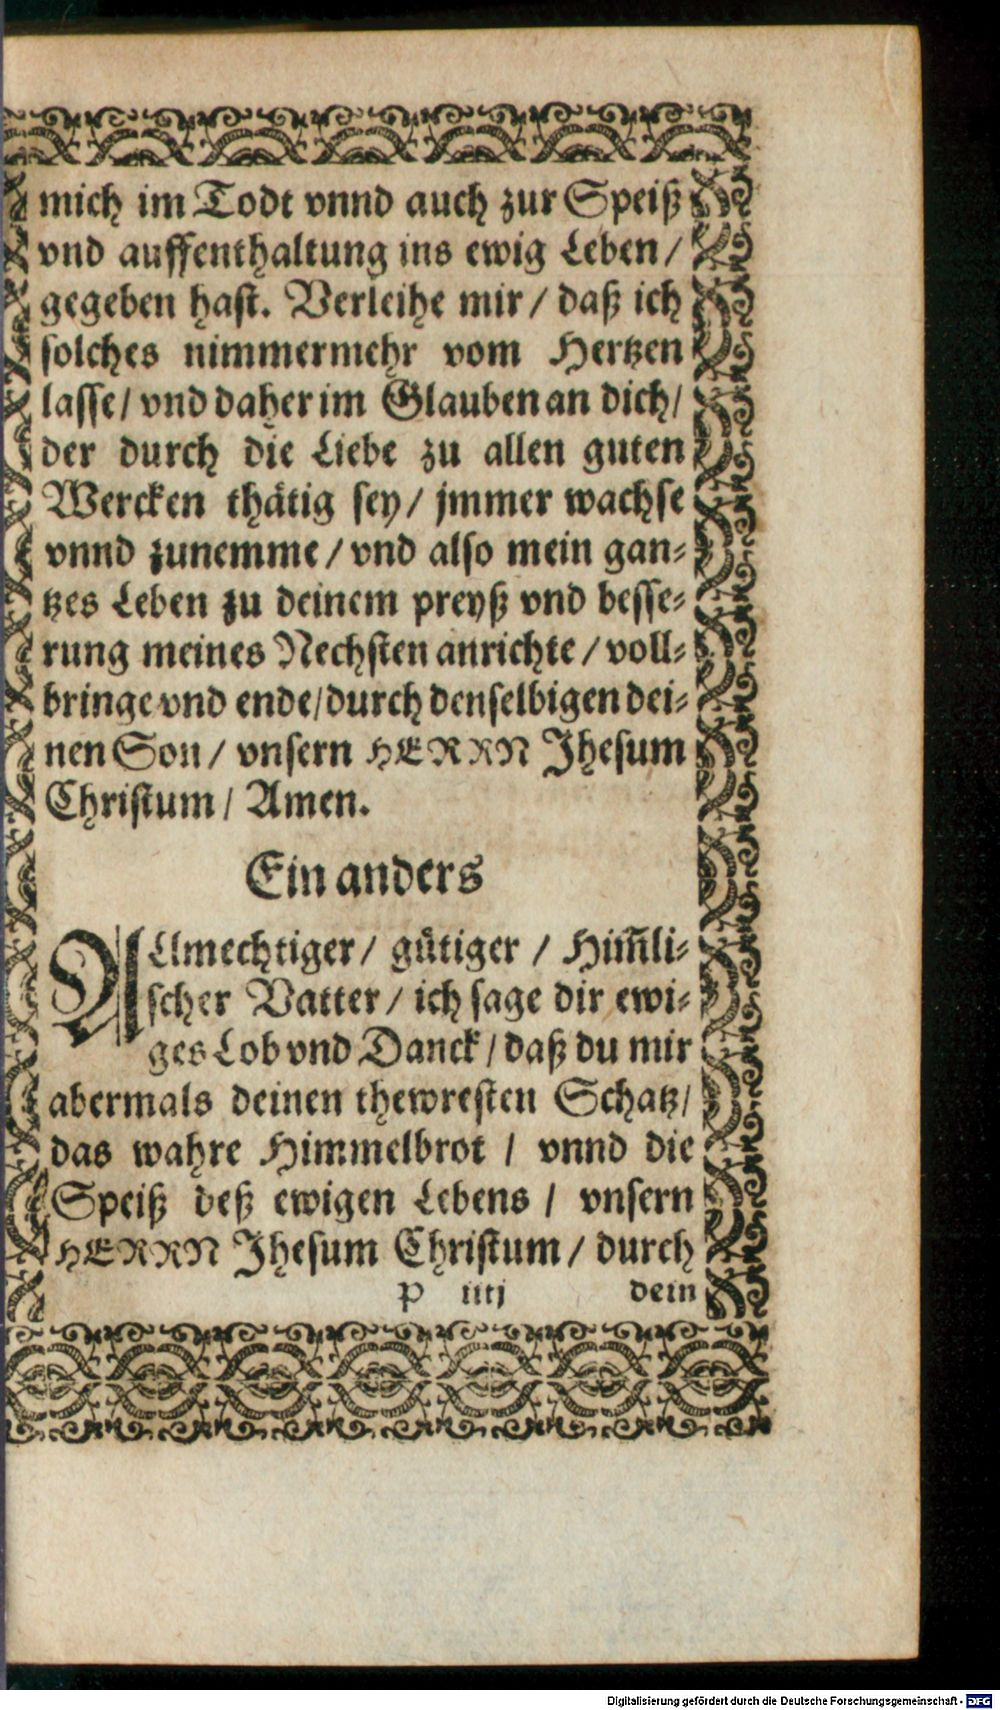 mich im Todt vnnd auch zur Speiß
vnd auffenthaltung ins ewig Leben/
gegeben hast. Verleihe mir/ daß ich
solches nimmermehr vom Hertzen
lasse/ vnd daher im Glauben an dich/
der durch die Liebe zu allen guten
Wercken thätig sey/ jmmer wachse
vnnd zunemme/ vnd also mein gan-
tzes Leben zu deinem preyß vnd besse-
rung meines Nechsten anrichte/ voll-
bringe vnd ende/ durch denselbigen dei-
nen Son/ vnsern HERRN Jhesum
Christum/ Amen.
Ein anders
ALlmechtiger/ gütiger / Him̄li-
scher Vatter/ ich sage dir ewi-
ges Lob vnd Danck/ daß du mir
abermals deinen thewresten Schatz/
das wahre Himmelbrot / vnnd die
Speiß deß ewigen Lebens / vnsern
HERRN Jhesum Christum/ durch
P iiij dein
Digitalisierung gefördert durch die Deutsche Forschungsgemeinschaft - DFG